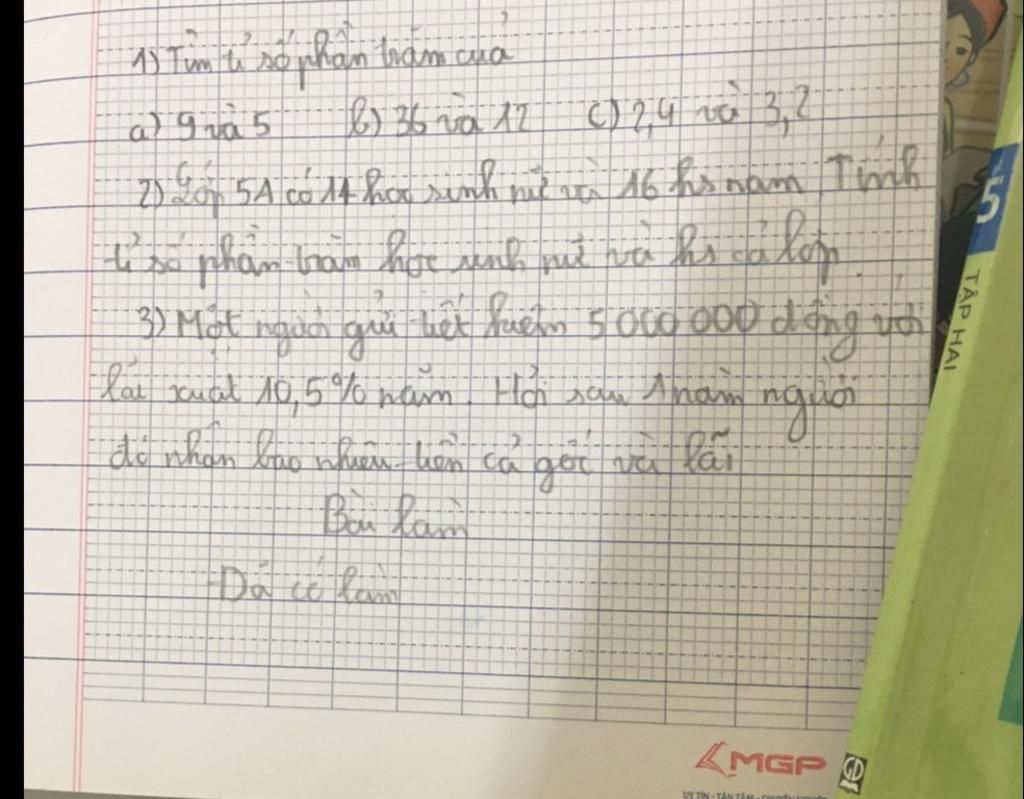 1) Tìm tỉ số phần trăm của
a) 9 và 5 b) 36 và 12 c) 2,4 và 3,2
2) Lớp 5A có 14 học sinh nữ và 16 hs nam Tính
tỉ số phần trăm học sinh nữ và hs cả lớp.
3) Một người gửi tiết kiệm 5 000 000 đồng với
lãi xuất 10,5% năm. Hỏi sau 1 năm người
đó nhận bao nhiêu tiền cả gốc và lãi
Bài làm
Đá có làm
5
TẬP HAI
MGP